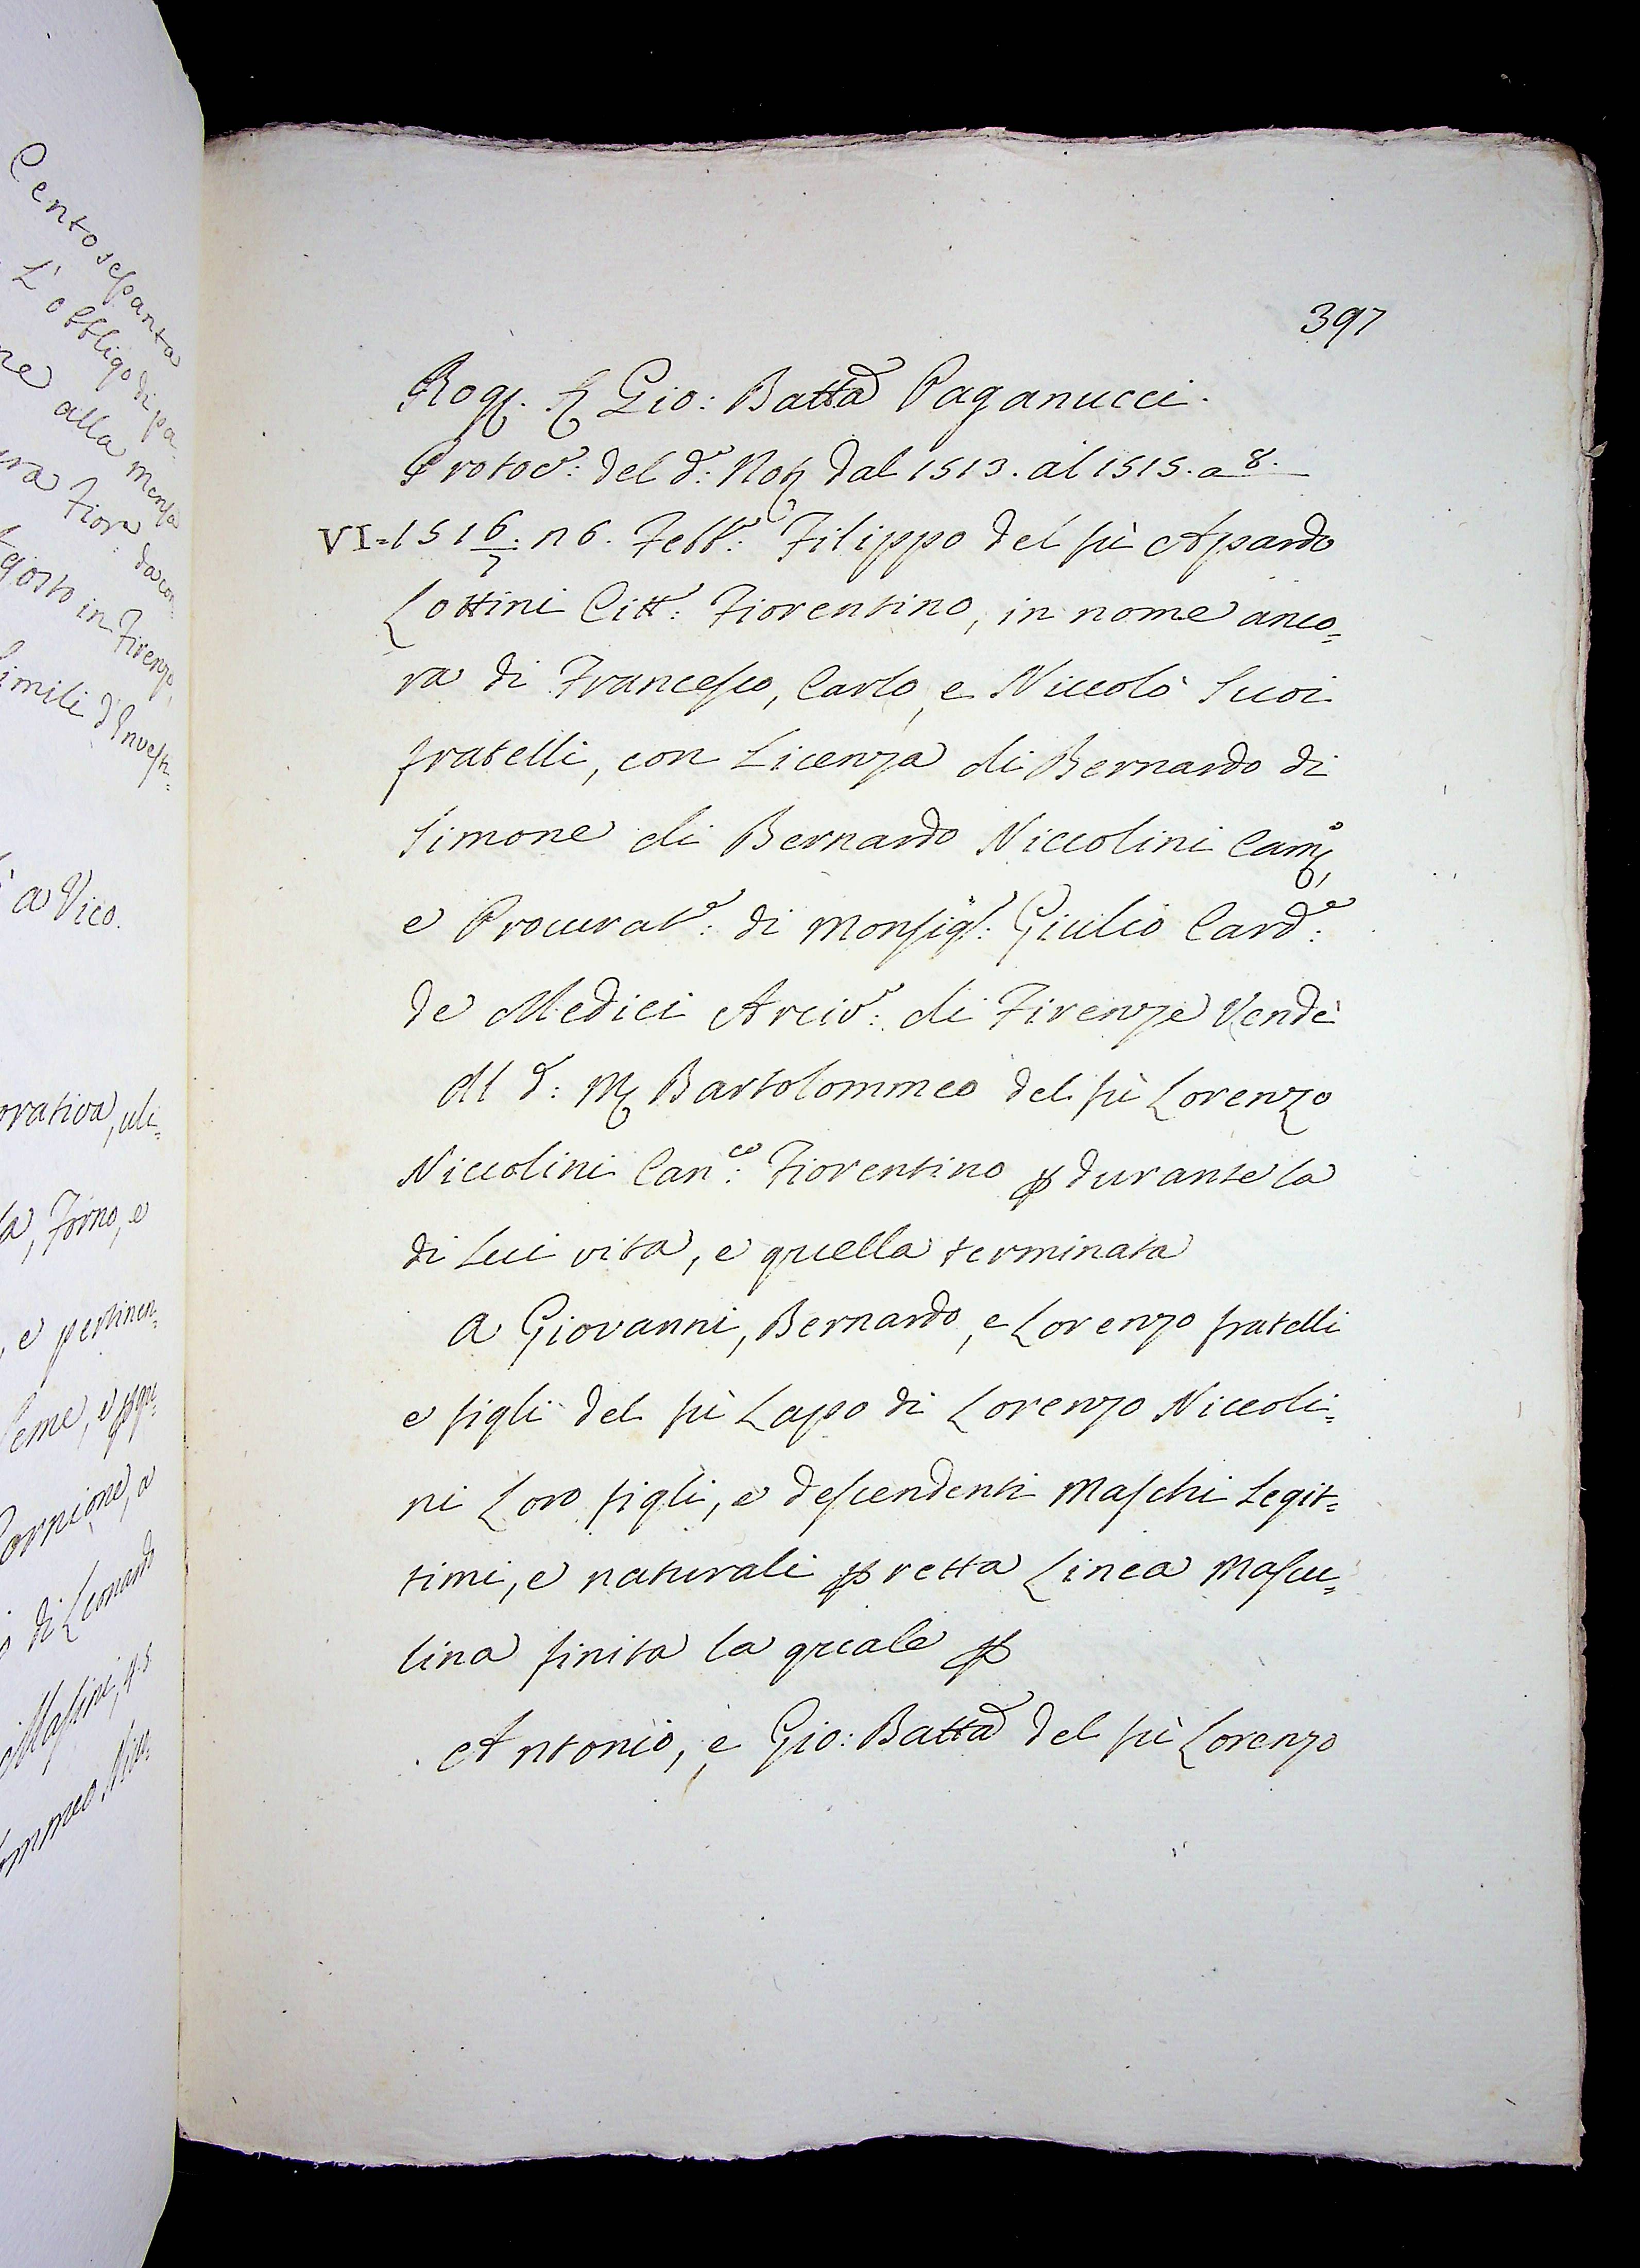 Centosessanta
L'obbligo di pa-
ne alla Mensa
ra Fior.a da con-
gosto in Firenze,
simili d'Invest=
a Vico.
orativa, uli=
la, Forno, e
, e pertinen=
seme, e
Cornione, a
o di Leonardo
Masini, q.s
ommeo Nicc=
397
Rog. Gio: Batta Paganucci.
Protoc: del d: Not dal 1513. al 1515. a 8.
VI=1516/7. n 6. Febb: Filippo del fù Apardo
Lottini Citt: Fiorentino, in nome anco=
ra di Francesco, Carlo, e Niccolò Suoi
fratelli, con Licenza di Bernardo di
Simone di Bernardo Niccolini Camo,
e Procurat: di Monsig: Giulio Card:e
de Medici Arciv: di Firenze Vendè
Al d: M Bartolommeo del fù Lorenzo
Niccolini Can:co Fiorentino p durante la
di Lui vita, e quella terminata
A Giovanni, Bernardo, e Lorenzo fratelli
e figli del fù Lapo di Lorenzo Niccoli=
ni Loro figli, e descendenti Maschi Legit=
timi, e naturali p retta Linea Mascu=
lina finita la quale p
Antonio, e Gio: Batta del fù Lorenzo